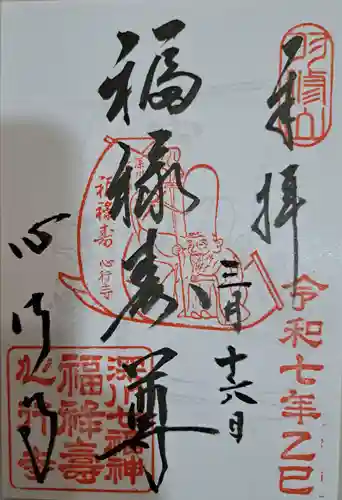 奉拝
令和七年乙巳
三月
十六日
福禄寿尊
福禄寿
心行寺
心行寺
深川七福神
福禄壽
心行寺